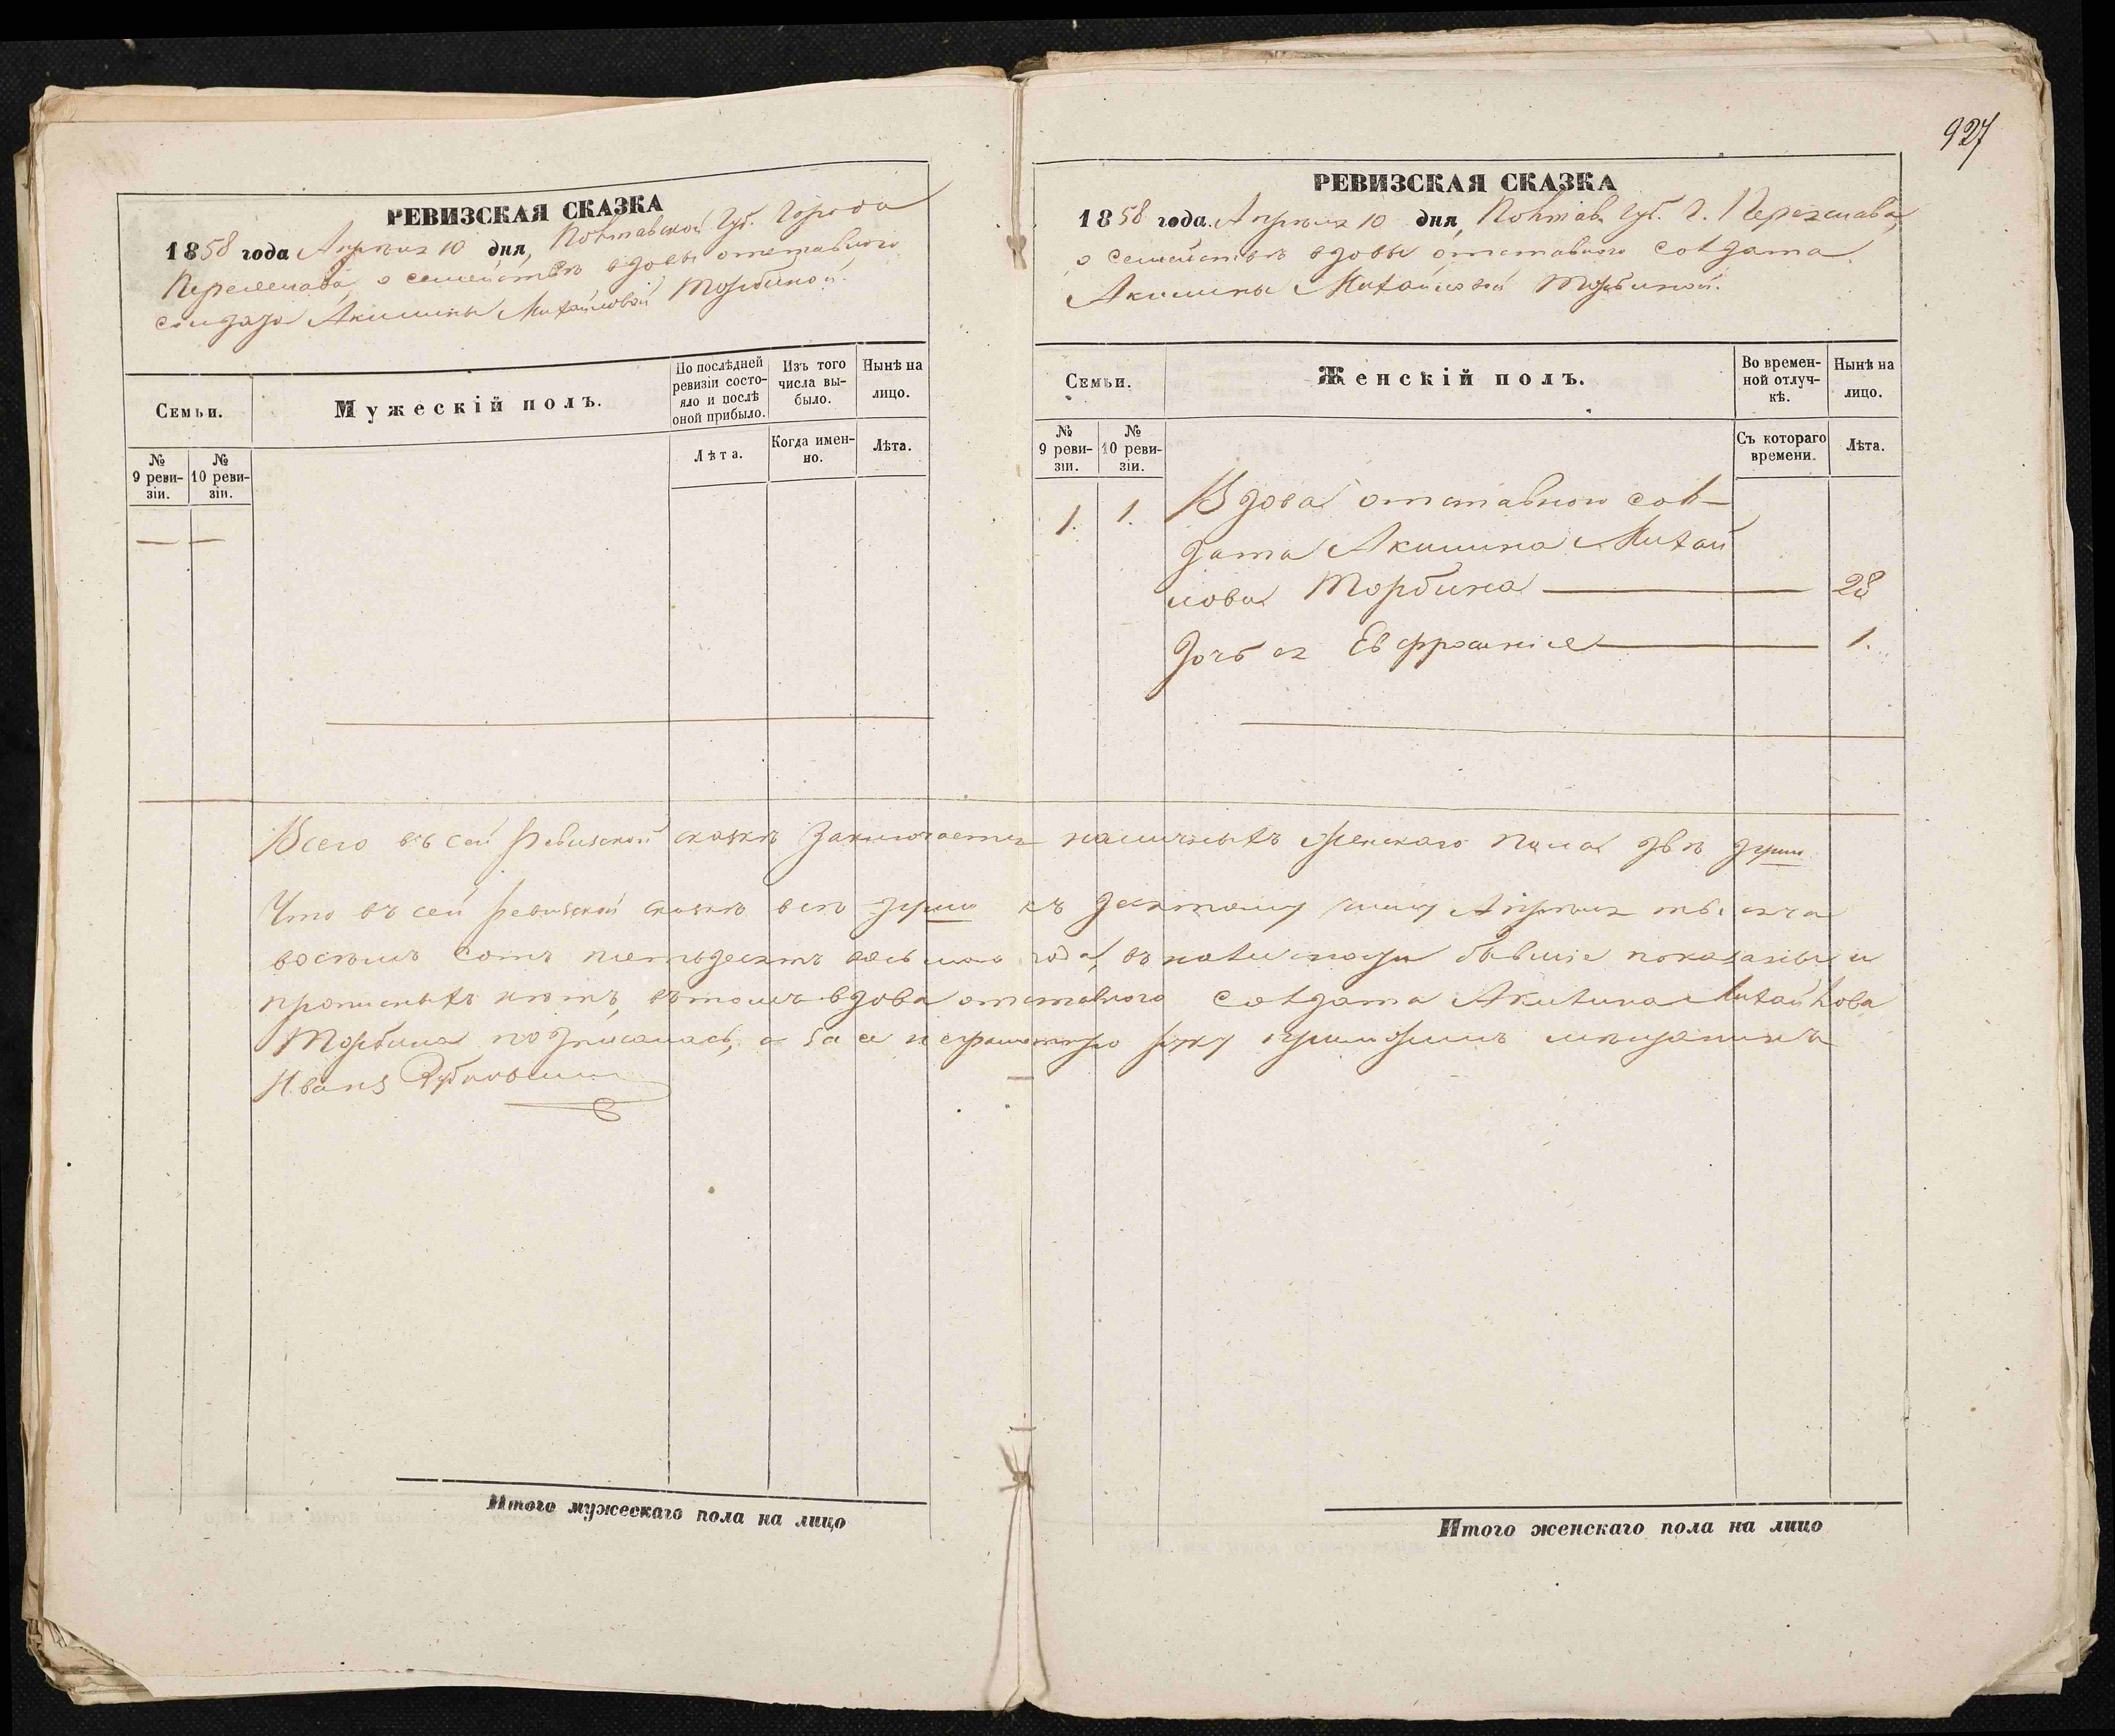 927
РЕВИЗСКАЯ СКАЗКА
1858 года Апрѣля 10 дня, Полтавской Губ. Города
Переяслава, о семействѣ вдовы отставного
солдата Акилины Михайловой Торбиной.
Семьи.
Мужескій полъ.
По послѣдней ревизіи состояло и послѣ оной прибыло.
Изъ того числа выбыло.
Нынѣ на лицо.
№ 9 ревизіи.
№ 10 ревизіи.
Лѣта.
Когда именно.
Лѣта.
— —
РЕВИЗСКАЯ СКАЗКА
1858 года Апрѣля 10 дня, Полтав. Губ. Г. Переяслава,
о семействѣ вдовы отставного солдата
Акилины Михайловой Торбиной.
Семьи.
Женскій полъ.
Во временной отлучкѣ.
Нынѣ на лицо.
№ 9 ревизіи.
№ 10 ревизіи.
Съ котораго времени.
Лѣта.
1. 1. Вдова отставного сол-
дата Акилина Михай
лова Торбина — 28
Дочь ея Евфросинія — 1.
Всего въ сей Ревизской сказкѣ заключается наличныхъ женскаго пола двѣ души.
Что въ сей ревизской сказкѣ всѣ души къ десятому числу Апрѣля тысяча
восемь сотъ пятьдесятъ восьмого года, въ бывшіе показаны и
прописныхъ нѣтъ, въ томъ вдова отставного солдата Акилина Михайлова
Торбина подписалась, а за ея неграмотную руку приложилъ мѣщанинъ
Иванъ
Итого мужескаго пола на лицо
Итого женскаго пола на лицо